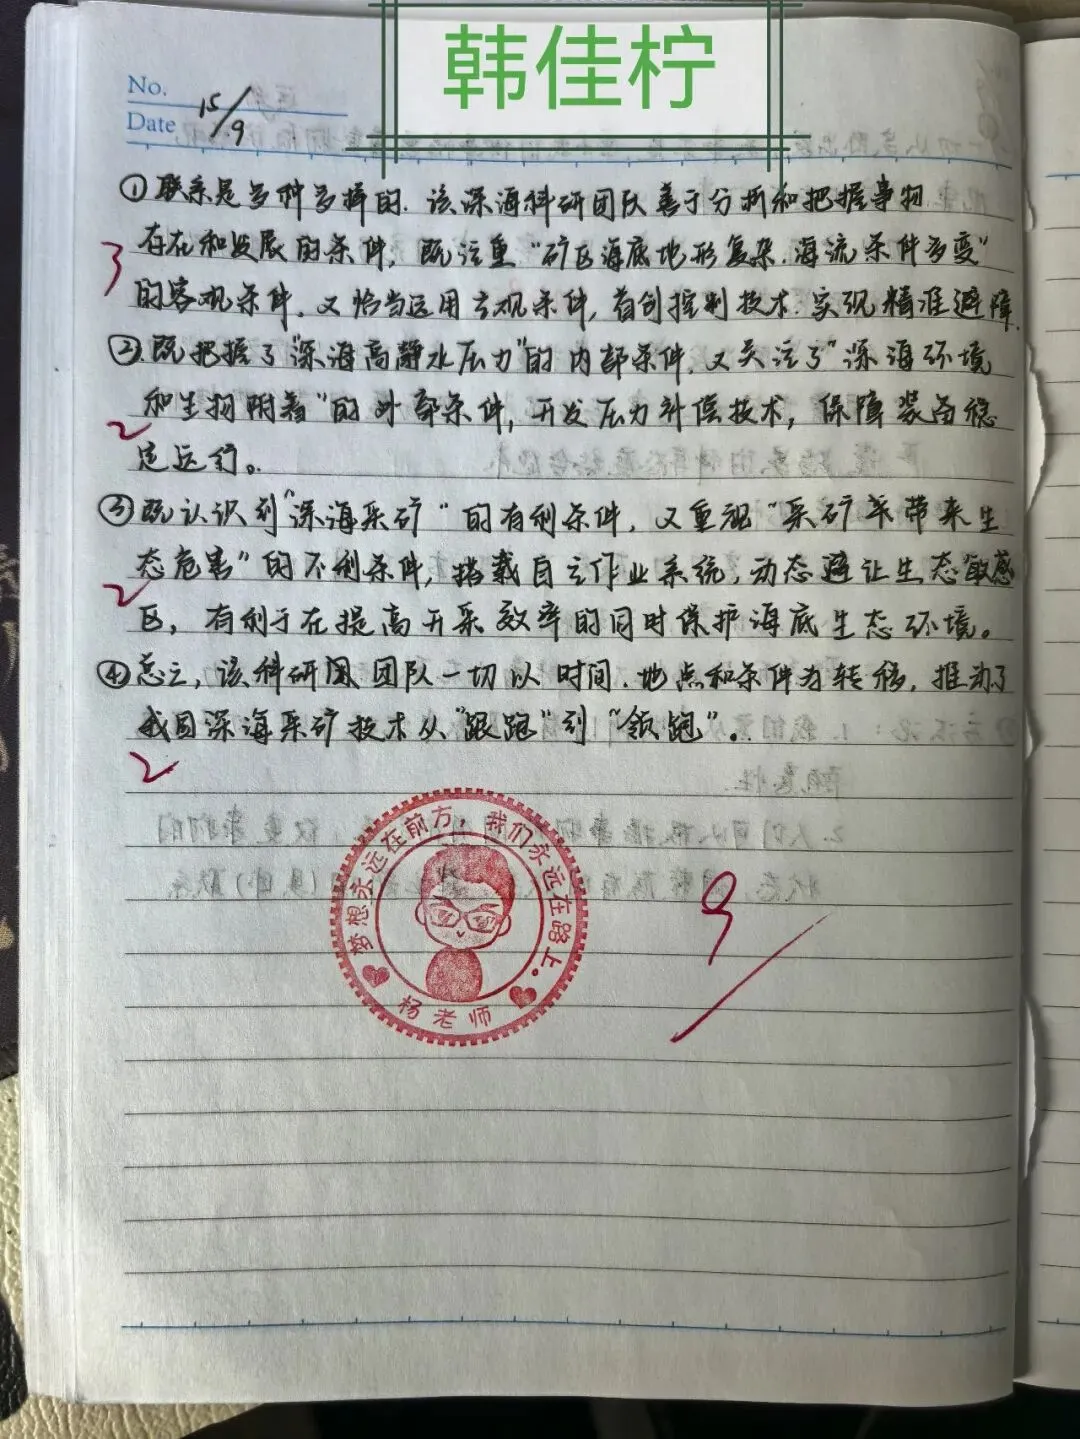 韩佳柠
No.
Date 15/9
①联系是多种多样的. 该深海科研团队善于分析和把握事物
存在和发展的条件, 既注重“矿区海底地形复杂.海流条件多变”
的客观条件. 又恰当运用主观条件, 首创控制技术. 实现精准避障.
3
②既把握了“深海高静水压力”的内部条件. 又关注了“深海环境
和生物附着”的外部条件, 开发压力补偿技术, 保障装备稳
2
定运行。
③既认识到“深海采矿“的有利条件, 又重视“采矿来带来生
态危害”的不利条件, 搭载自主作业系统, 动态避让生态敏感
2
区, 有利于在提高开采效率的同时保护海底生态环境。
④总之, 该科研团队一切以时间.地点和条件为转移, 推动了
我国深海采矿技术从“跟跑”到“领跑”.
2
梦想永远在前方,我们永远在路上。
杨老师
9